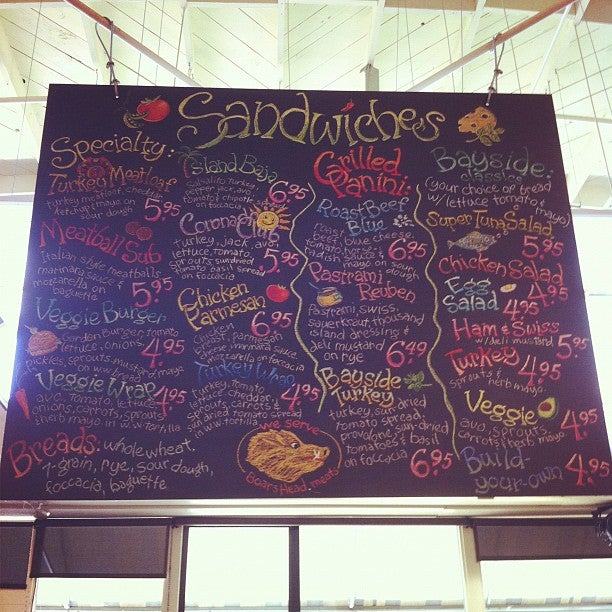 Sandwiches
Specialty:
Turkey Meatloaf
turkey meatloaf, cheddar,
ketchup & mayo on
sour dough
5.95
Meatball Sub
Italian style meatballs
marinara sauce &
mozzarella on
baguette
5.95
Veggie Burger
Garden Burger, tomato
lettuce, onions,
pickles, sprouts, mustard, mayo
on ww bread
4.95
Veggie Wrap
avo, tomato, lettuce
onions, carrots, sprouts
& herb mayo in w.w. tortilla
4.95
Island Baja
Salsalito Turkey
pepper jack, avo
tomato & chipotle
on focaccia
6.95
Corona Club
turkey, jack, avo,
lettuce, tomato,
sprouts, sundried
tomato basil spread
on focaccia
5.95
Chicken
Parmesan
chicken
breast, parmesan
cheese, marinara sauce,
mozzarella on focaccia
6.95
Turkey Wrap
turkey, tomato
lettuce, cheddar,
sprouts, carrots &
sundried tomato spread
in w.w. tortilla
4.95
Grilled
Panini:
Roast Beef
Blue
roast beef, blue cheese,
tomato,
sauce &
mayo on sour dough
6.95
Pastrami
Reuben
Pastrami, swiss
sauerkraut, thousand
island dressing &
deli mustard
on rye
6.49
Bayside
Turkey
turkey, sun dried
tomato spread,
provolone, sun-dried
tomatoes & basil
on foccacia
6.95
Bayside:
classics
(your choice of bread
w/ lettuce, tomato &
mayo)
Super Tuna Salad
5.95
Chicken Salad
4.95
Egg
Salad
4.95
Ham & Swiss
w/ deli mustard
5.95
Turkey
sprouts &
herb mayo
4.95
Veggie
avo, sprouts,
carrots & herb mayo
4.95
Build-
your-own
4.95
Breads: whole wheat,
9-grain, rye, sour dough,
foccacia, baguette
we serve
Boars Head meats